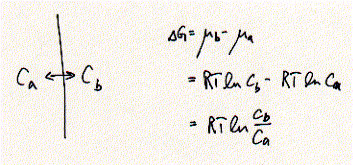 Ca ↔ Cb
ΔG = μb - μa
= RT ln Cb - RT ln Ca
= RT ln Cb/Ca